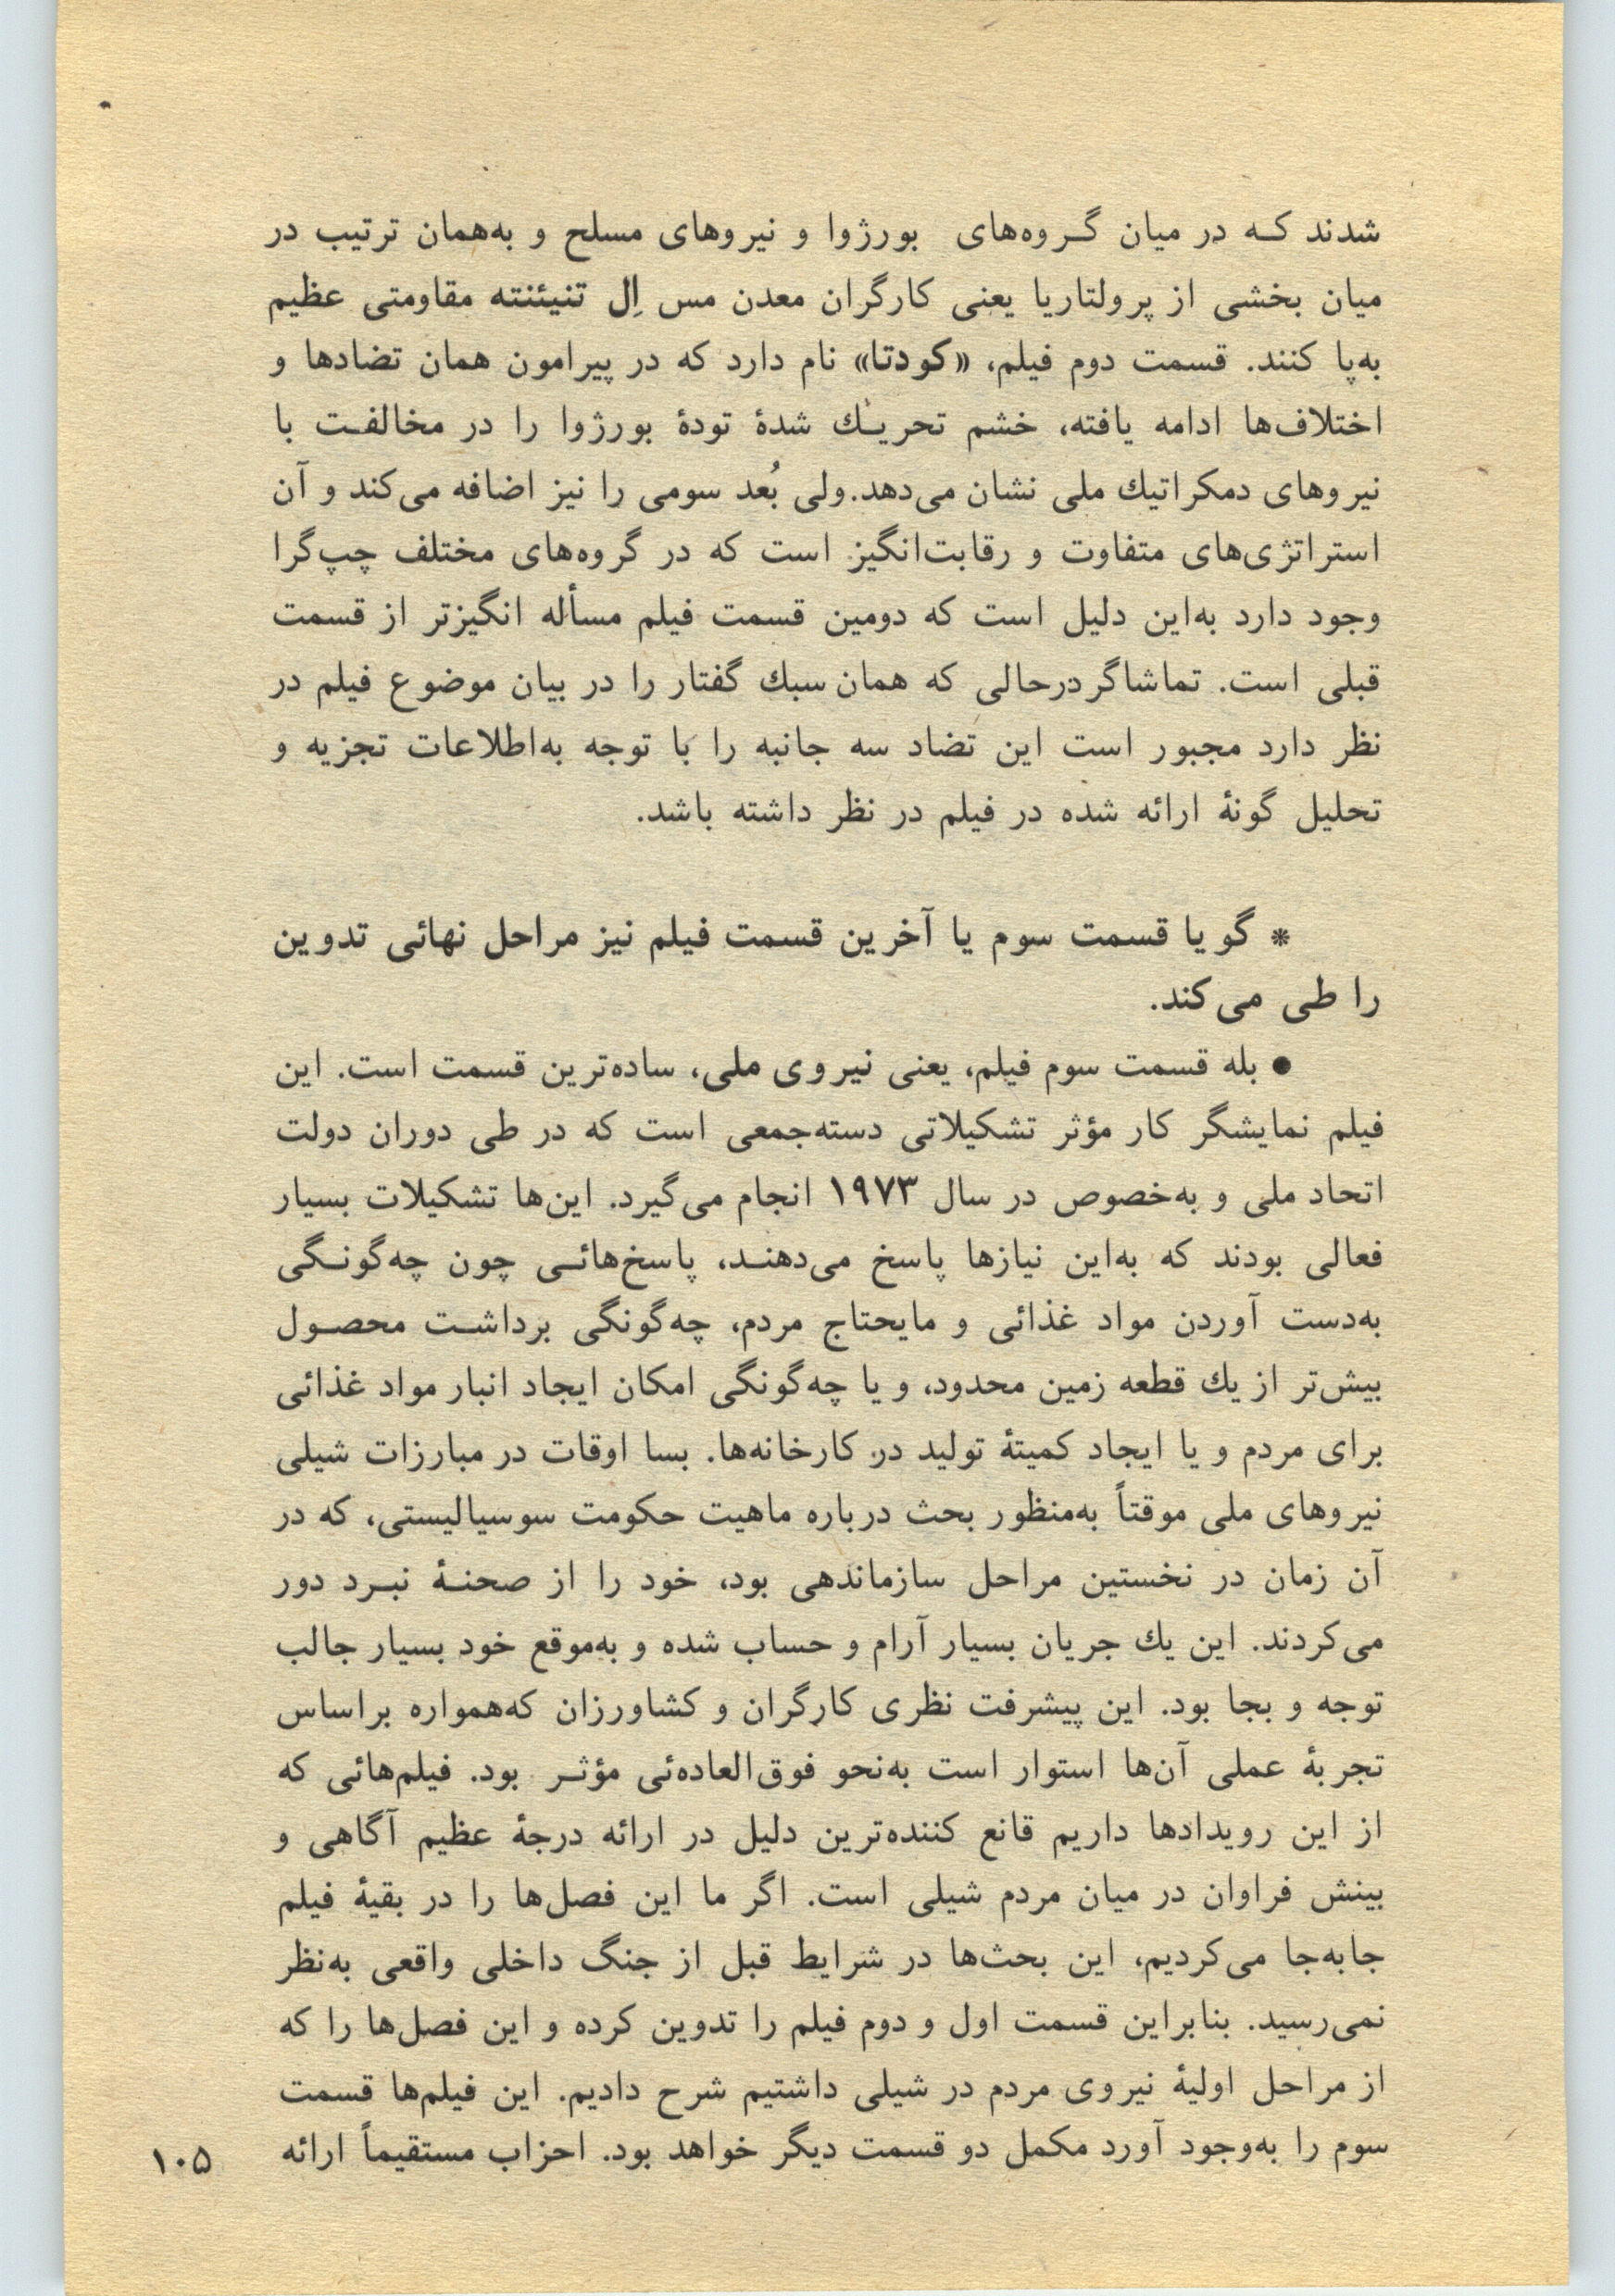 شدند که در میان گروه‌های بورژوا و نیروهای مسلح و به‌همان ترتیب در
میان بخشی از پرولتاریا یعنی کارگران معدن مس اِل تنیئنته مقاومتی عظیم
به‌پا کنند. قسمت دوم فیلم، «کودتا» نام دارد که در پیرامون همان تضادها و
اختلاف‌ها ادامه یافته، خشم تحریك شدهٔ تودهٔ بورژوا را در مخالفت با
نیروهای دمکراتیك ملی نشان می‌دهد. ولی بُعد سومی را نیز اضافه می‌کند و آن
استراتژی‌های متفاوت و رقابت‌انگیز است که در گروه‌های مختلف چپ‌گرا
وجود دارد به‌این دلیل است که دومین قسمت فیلم مسأله انگیزتر از قسمت
قبلی است. تماشاگر درحالی که همان سبك گفتار را در بیان موضوع فیلم در
نظر دارد مجبور است این تضاد سه جانبه را با توجه به‌اطلاعات تجزیه و
تحلیل گونهٔ ارائه شده در فیلم در نظر داشته باشد.
* گویا قسمت سوم یا آخرین قسمت فیلم نیز مراحل نهائی تدوین
را طی می‌کند.
● بله قسمت سوم فیلم، یعنی نیروی ملی، ساده‌ترین قسمت است. این
فیلم نمایشگر کار مؤثر تشکیلاتی دسته‌جمعی است که در طی دوران دولت
اتحاد ملی و به‌خصوص در سال ۱۹۷۳ انجام می‌گیرد. این‌ها تشکیلات بسیار
فعالی بودند که به‌این نیازها پاسخ می‌دهند، پاسخ‌هائی چون چه‌گونگی
به‌دست آوردن مواد غذائی و مایحتاج مردم، چه‌گونگی برداشت محصول
بیش‌تر از یك قطعه زمین محدود، و یا چه‌گونگی امکان ایجاد انبار مواد غذائی
برای مردم و یا ایجاد کمیتهٔ تولید در کارخانه‌ها. بسا اوقات در مبارزات شیلی
نیروهای ملی موقتاً به‌منظور بحث درباره ماهیت حکومت سوسیالیستی، که در
آن زمان در نخستین مراحل سازماندهی بود، خود را از صحنهٔ نبرد دور
می‌کردند. این یك جریان بسیار آرام و حساب شده و به‌موقع خود بسیار جالب
توجه و بجا بود. این پیشرفت نظری کارگران و کشاورزان که‌همواره براساس
تجربهٔ عملی آن‌ها استوار است به‌نحو فوق‌العاده‌ئی مؤثر بود. فیلم‌هائی که
از این رویدادها داریم قانع کننده‌ترین دلیل در ارائه درجهٔ عظیم آگاهی و
بینش فراوان در میان مردم شیلی است. اگر ما این فصل‌ها را در بقیهٔ فیلم
جابه‌جا می‌کردیم، این بحث‌ها در شرایط قبل از جنگ داخلی واقعی به‌نظر
نمی‌رسید. بنابراین قسمت اول و دوم فیلم را تدوین کرده و این فصل‌ها را که
از مراحل اولیهٔ نیروی مردم در شیلی داشتیم شرح دادیم. این فیلم‌ها قسمت
سوم را به‌وجود آورد مکمل دو قسمت دیگر خواهد بود. احزاب مستقیماً ارائه
۱۰۵